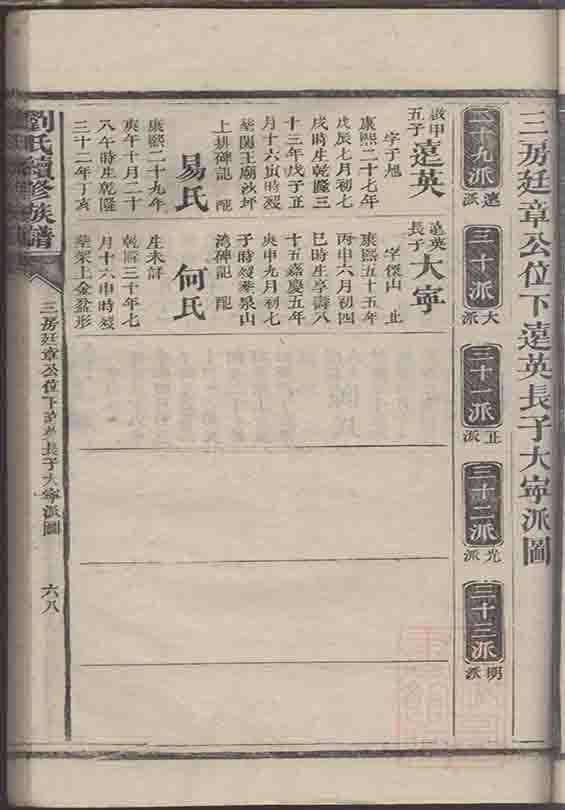 三房廷章公位下遠英長子大寧派圖
二十九派
遠派
三十派
大派
三十一派
止派
三十二派
光派
三十三派
明派
啟甲五子
遠英
字子旭
康熙二十七年
戊辰七月初七
戌時生乾隆三
十三年戊子正
月十六寅時歿
葬関王廟沙坪
上排碑記 配
易氏
康熙二十九年
庚午十月二十
八午時生乾隆
三十二年丁亥
遠英長子
大寧
字傑山 止
康熙五十五年
丙申六月初四
巳時生享壽八
十五嘉慶五年
庚申九月初七
子時歿葬泉山
灣碑記 配
何氏
生未詳
乾隆三十年七
月十六申時歿
葬架上金盆形
劉氏續修族譜
三房廷章公位下遠英長子大寧派圖
六八